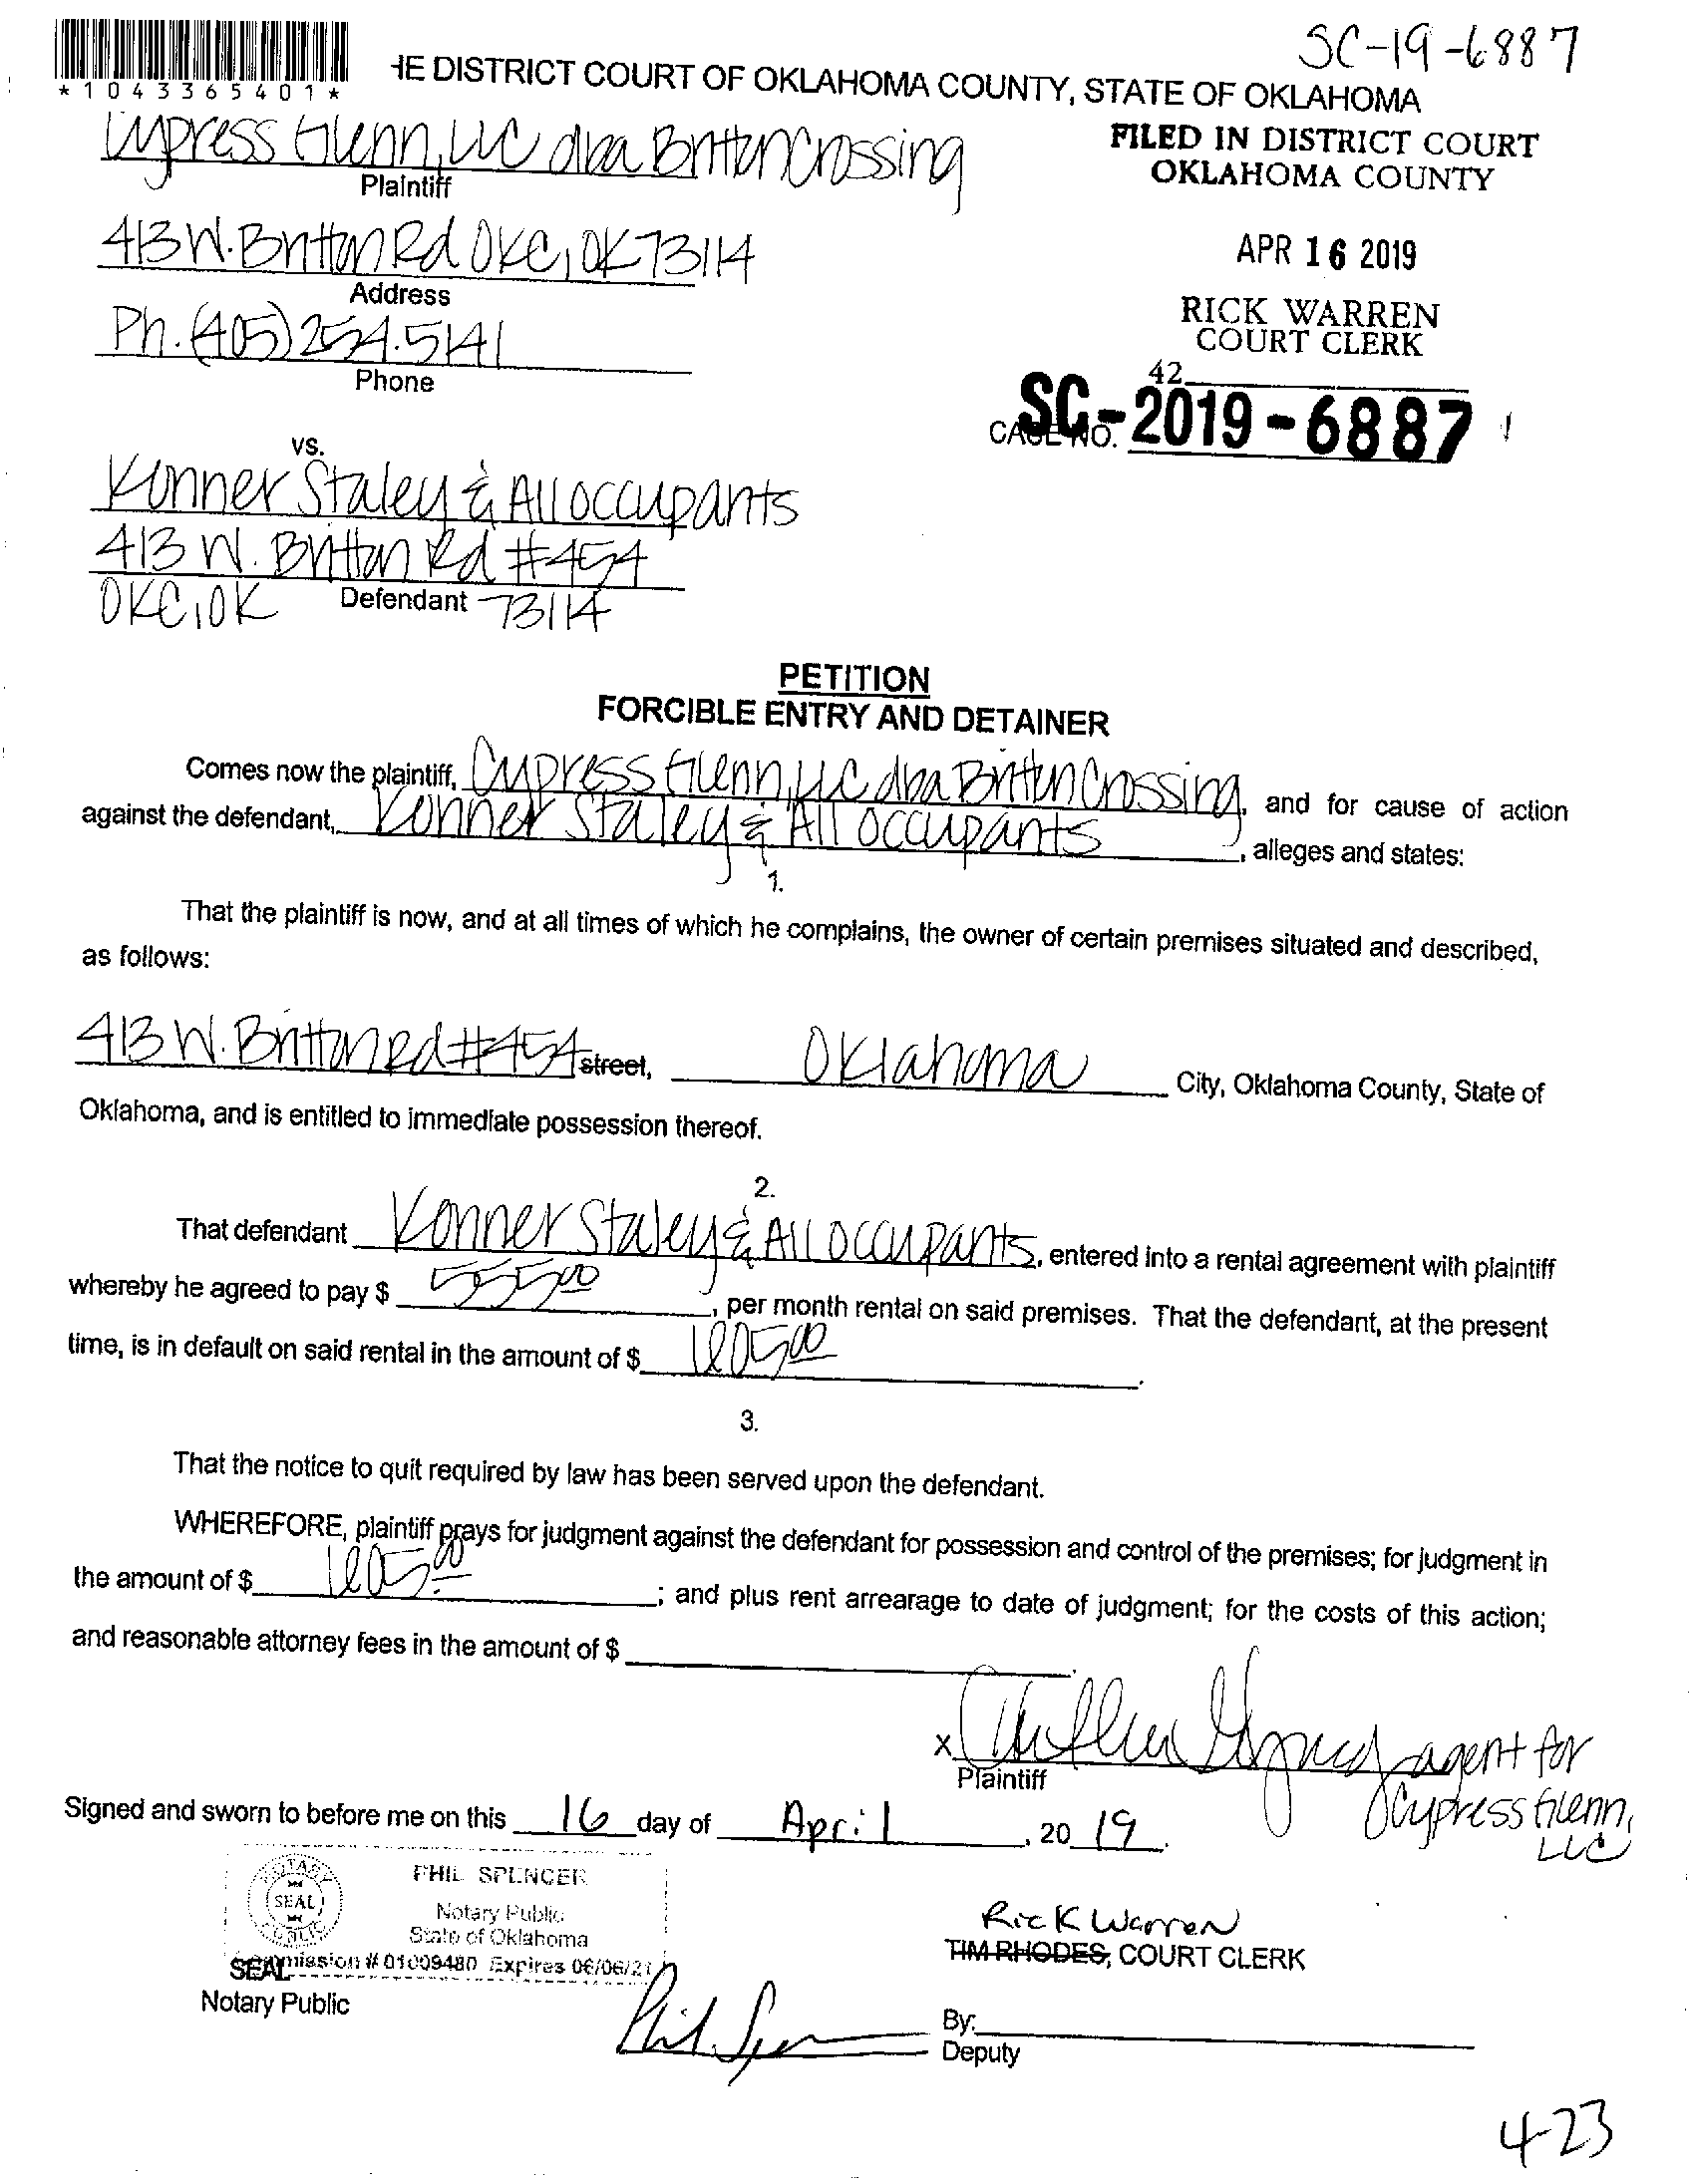 SC-19-6887
*1043365401*
HE DISTRICT COURT OF OKLAHOMA COUNTY, STATE OF OKLAHOMA
Cypress Glenn, LLC dba Britton Crossing
Plaintiff
FILED IN DISTRICT COURT
OKLAHOMA COUNTY
413 W. Britton Rd OKC, OK 73114
Address
APR 16 2019
Ph. (405) 254.5141
Phone
RICK WARREN
COURT CLERK
42
CASE NO. SC-2019-6887
vs.
Konner Staley & All occupants
413 W. Britton Rd #454
OKC, OK 73114
Defendant
PETITION
FORCIBLE ENTRY AND DETAINER
Comes now the plaintiff, Cypress Glenn, LLC dba Britton Crossing, and for cause of action
against the defendant, Konner Staley & All occupants, alleges and states:
1.
That the plaintiff is now, and at all times of which he complains, the owner of certain premises situated and described,
as follows:
413 W. Britton Rd #454 street, Oklahoma City, Oklahoma County, State of
Oklahoma, and is entitled to immediate possession thereof.
2.
That defendant Konner Staley & All Occupants, entered into a rental agreement with plaintiff
whereby he agreed to pay $ 555.00, per month rental on said premises. That the defendant, at the present
time, is in default on said rental in the amount of $ 605.00.
3.
That the notice to quit required by law has been served upon the defendant.
WHEREFORE, plaintiff prays for judgment against the defendant for possession and control of the premises; for judgment in
the amount of $ 605.00; and plus rent arrearage to date of judgment; for the costs of this action;
and reasonable attorney fees in the amount of $
x agent for
Plaintiff
Cypress Glenn,
LLC
Signed and sworn to before me on this 16 day of April, 20 19.
NOTARY
SEAL
PUBLIC
PHIL SPENCER
Notary Public
State of Oklahoma
Commission # 01009480 Expires 06/06/21
SEAL
Notary Public
Phil Spencer
Rick Warren
TIM RHODES, COURT CLERK
By:
Deputy
4-23